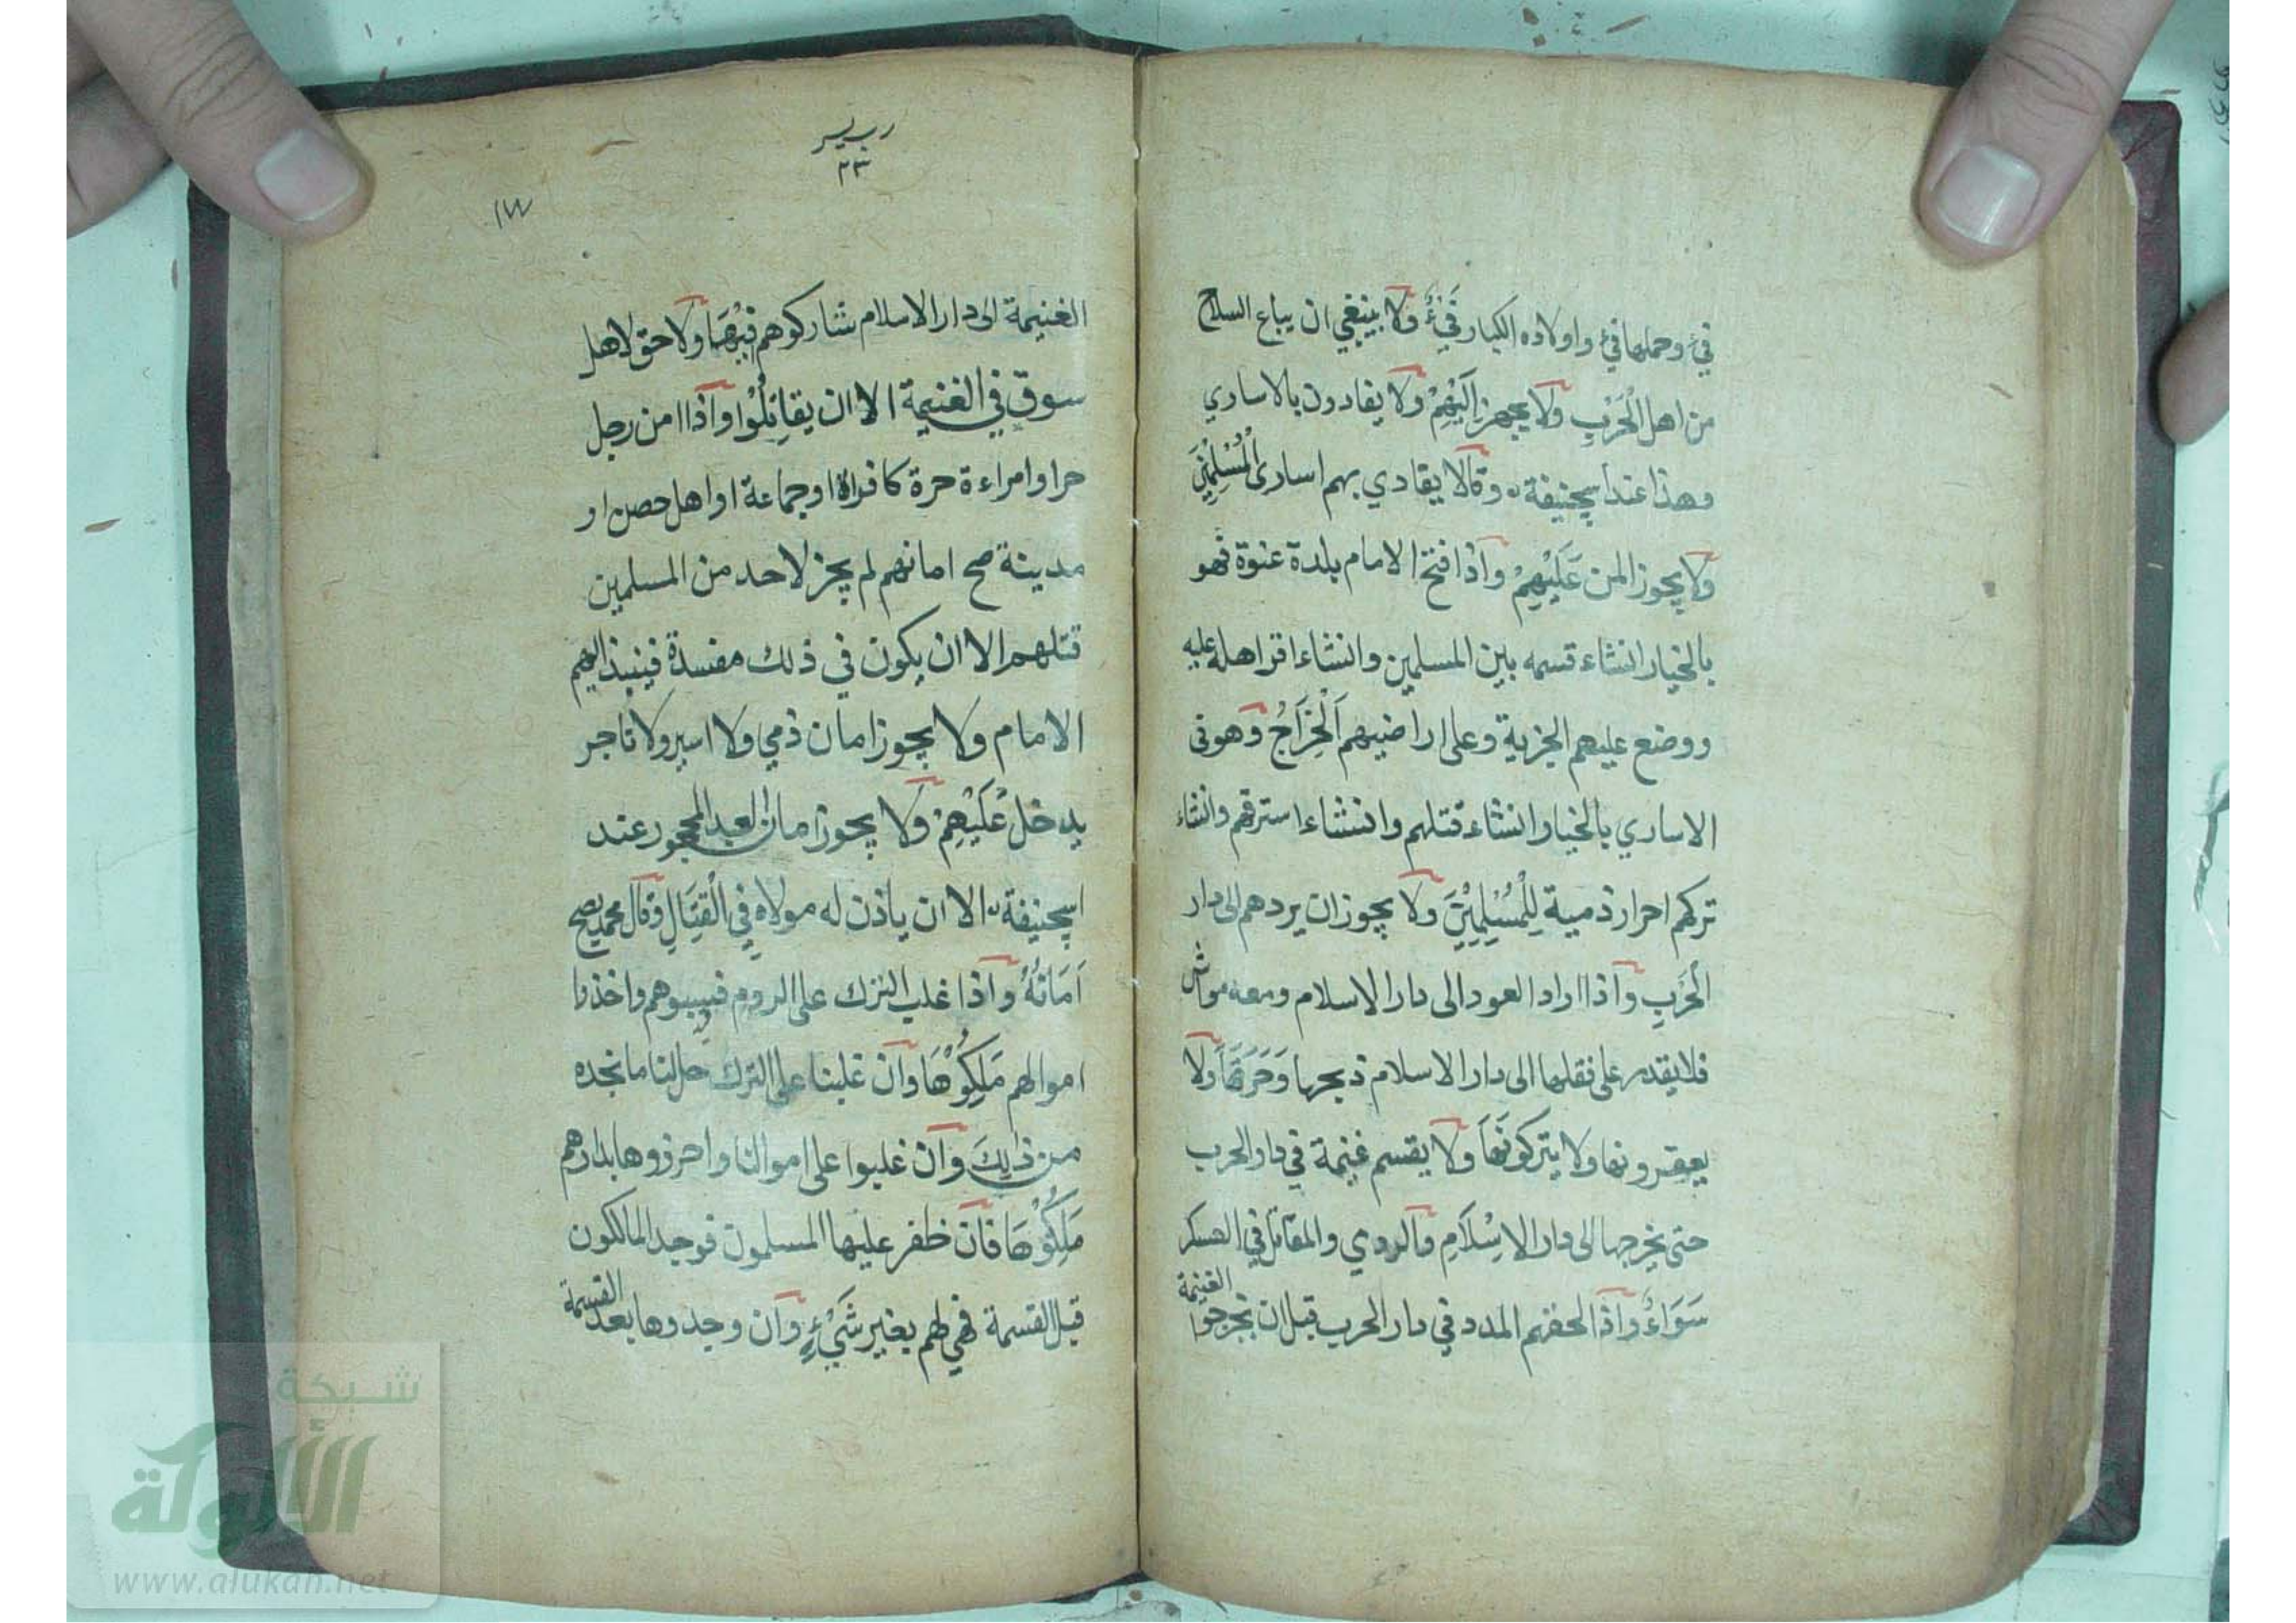 فئ وحملها فئ واولاده الكبار فَيْءٌ ولا ينبغي ان يباع السلاح
من اهل الْحَرْبِ ولا يجهز اِلَيْهِمْ ولا يفادون بالاساري
وهذا عند ابيحنيفة وقالا يفادي بهم اسارى الْمُسْلِمِيْنَ
ولا يجوز المن عَلَيْهِمْ واذا فتح الامام بلدة عنوة فهو
بالخيار انشاء قسمه بين المسلمين وانشاء اقر اهله عليه
ووضع عليهم الجزية وعلى اراضيهم اَلْخِرَاجُ وهو فى
الاساري بالخيار انشاء قتلهم وانشاء استرقهم وانشاء
تركهم احرار ذمية لِلْمُسْلِمِيْنَ ولا يجوز ان يردهم الى دار
الْحَرْبِ واذا اراد العود الى دار الاسلام ومعه مواش
فلا يقدر على نقلها الى دار الاسلام ذبحها وَحَرَقَهَا ولا
يعقرونها ولا يتركونَهَا ولا يقسم غنيمة في دار الحرب
حتى يخرجها الى دار الاِسْلَامِ والردي والمقاتل في العسكر
سَوَاءٌ واذا لحقهم المدد في دار الحرب قبل ان يخرجوا الغنيمة
رب يسر
٢٣
١٧٧
الغنيمة الى دار الاسلام شاركوهم فِيْهَا ولا حق لاهل
سوق في الغنيمة الا ان يقاتِلُوْا واذا امن رجل
حر او امراءة حرة كافرا او جماعة او اهل حصن او
مدينة صح امانهم لم يجز لاحد من المسلمين
قتلهم الا ان يكون في ذلك مفسدة فينبذ اليهم
الامام ولا يجوز امان ذمي ولا اسير ولا تاجر
يدخل عَلَيْهِمْ ولا يجوز امان العبد المحجور عند
ابيحنيفة الا ان ياذن له مولاه في الْقِتَالِ وقال محمد يصح
اَمَانُهُ واذا غلب الترك على الروم فسبوهم واخذوا
اموالهم مَلِكُوْهَا وان غلبنا على الترك حل لنا ما نجده
من ذٰلِكَ وان غلبوا على اموالنا واحرزوها بدارهم
مَلِكُوْهَا فان ظفر عليها المسلمون فوجد المالكون
قبل القسمة فهي لهم بغير شَيْءٍ وان وجدوها بعد القسمة
شبكة
الألوكة
www.alukah.net